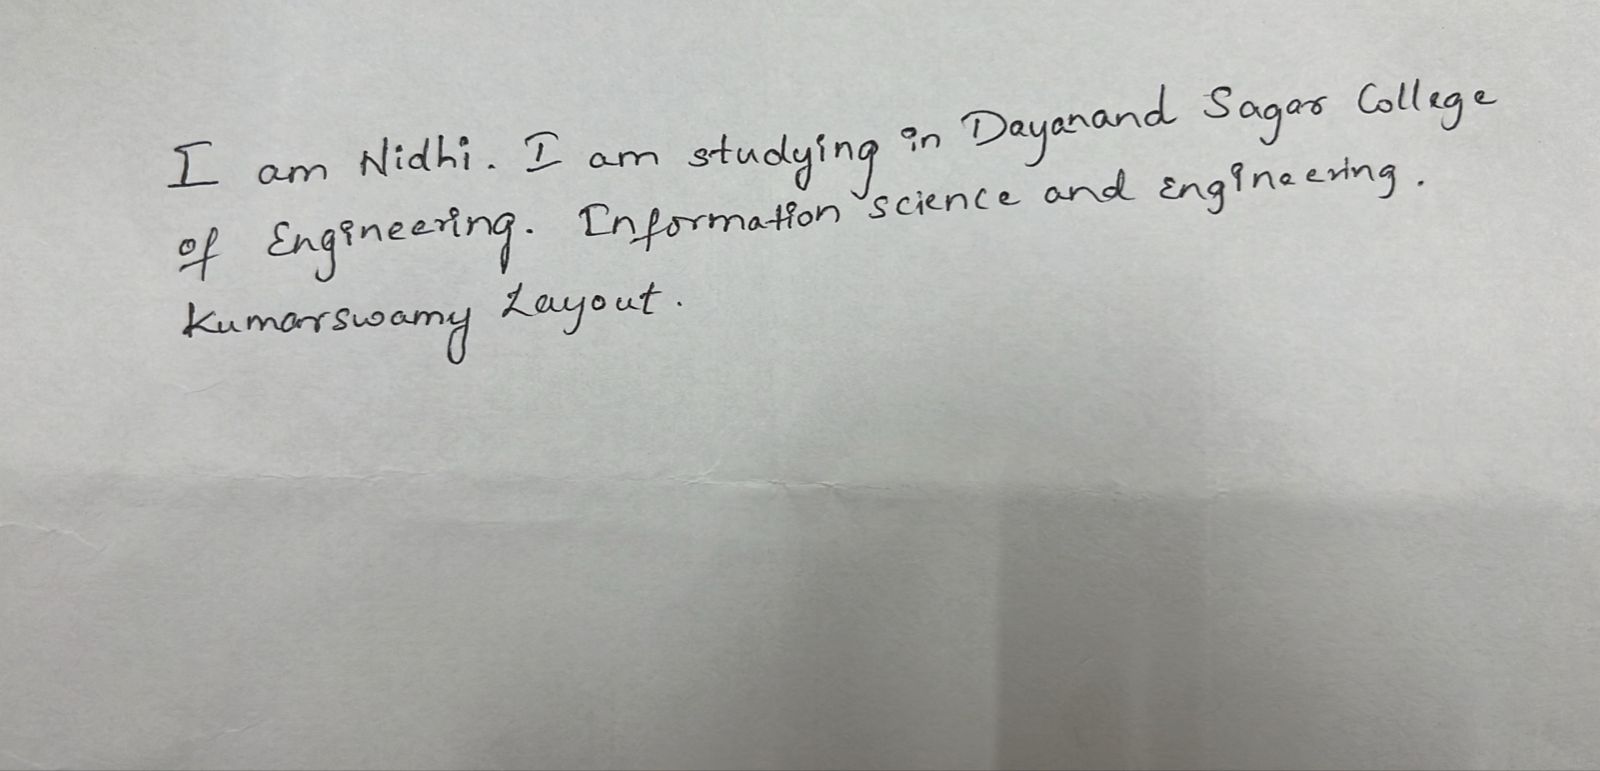 I am Nidhi. I am studying in Dayanand Sagar College
of Engineering. Information science and engineering.
Kumarswamy Layout.